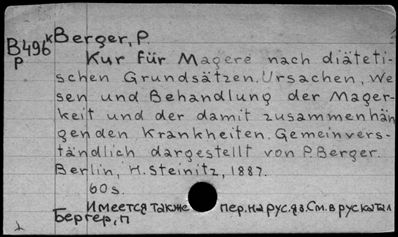 B496к Berger, P.
P Kur für Magere nach diäteti-
schen Grundsätzen. Ursachen, We
sen und Behandlung der Mager-
keit und der damit zusammenhän
genden Krankheiten. Gemeinvers-
tändlich dargestellt von P. Berger.
Berlin, H. Steinitz, 1887.
60s.
Имеется также пер. на рус. яз. См. в рус катал
Бергер, П